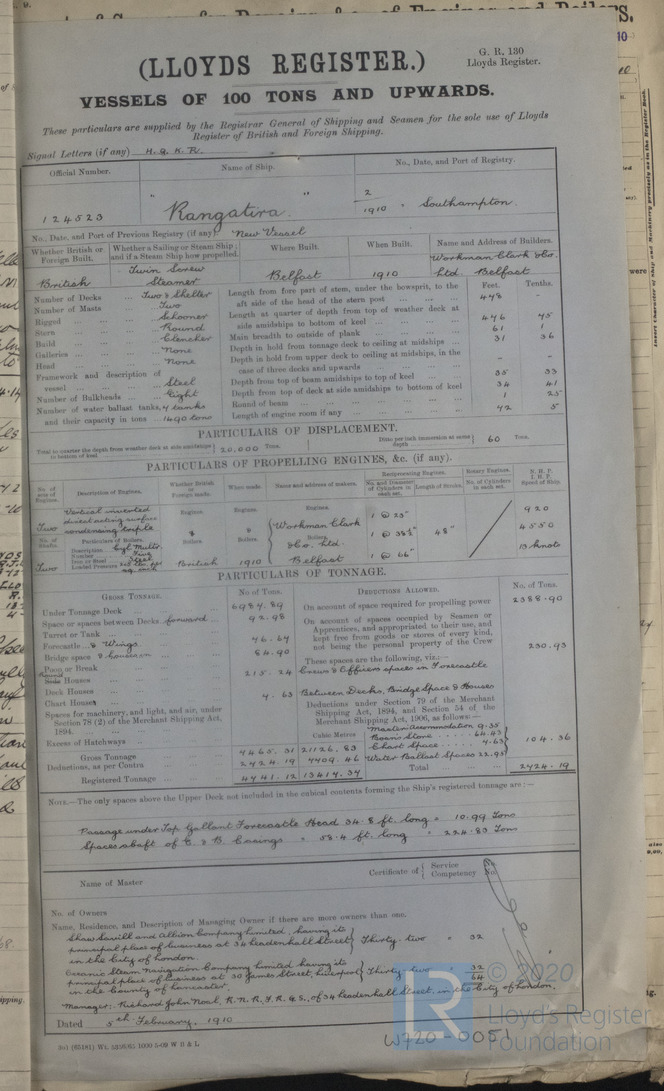 (LLOYDS REGISTER.)
G. R. 130
Lloyds Register.
VESSELS OF 100 TONS AND UPWARDS.
These particulars are supplied by the Registrar General of Shipping and Seamen for the sole use of Lloyds
Register of British and Foreign Shipping.
Signal Letters (if any) H. Q. K. R.
Official Number. Name of Ship. No., Date, and Port of Registry.
124523 " Rangatira " 2/1910 " Southampton
No., Date, and Port of Previous Registry (if any) New Vessel
Whether British or Foreign Built. Whether a Sailing or Steam Ship; and if a Steam Ship how propelled. Where Built. When Built. Name and Address of Builders.
British Twin Screw Steamer Belfast 1910 Workman Clark & Co. Ltd. Belfast
Number of Decks ... Two & Shelter
Number of Masts Two
Rigged Schooner
Stern Round
Build Clencher
Galleries None
Head None
Framework and description of vessel Steel
Number of Bulkheads Eight
Number of water ballast tanks, 4 tanks
and their capacity in tons 1490 tons
Feet. Tenths.
Length from fore part of stem, under the bowsprit, to the
aft side of the head of the stern post 478 -
Length at quarter of depth from top of weather deck at
side amidships to bottom of keel 476 45
Main breadth to outside of plank 61 1
Depth in hold from tonnage deck to ceiling at midships 31 36
Depth in hold from upper deck to ceiling at midships, in the
case of three decks and upwards - -
Depth from top of beam amidships to top of keel 35 33
Depth from top of deck at side amidships to bottom of keel 34 41
Round of beam 1 25
Length of engine room if any 42 5
PARTICULARS OF DISPLACEMENT.
Total to quarter the depth from weather deck at side amidships to bottom of keel 20,000 Tons.
Ditto per inch immersion at same depth 60 Tons.
PARTICULARS OF PROPELLING ENGINES, &c. (if any).
No. of sets of Engines. Description of Engines. Whether British or Foreign made. When made. Name and address of makers. Reciprocating Engines. No. and Diameter of Cylinders in each set. Length of Stroke. Rotary Engines. No. of Cylinders in each set. N. H. P. I. H. P. Speed of Ship.
Two Vertical inverted direct acting surface condensing triple
Engines. Engines. Engines.
1 @ 23" 920
1 @ 38½" 48" 4550
1 @ 66" 13 knots
No. of Shafts. Particulars of Boilers. Boilers. Boilers. Boilers.
Description Cyl. Multr.
Number Five
Iron or Steel Steel
Loaded Pressure
Two British 1910 Workman Clark & Co. Ltd. Belfast
PARTICULARS OF TONNAGE.
GROSS TONNAGE. No of Tons.
Under Tonnage Deck 6984.89
Space or spaces between Decks forward 92.98
Turret or Tank
Forecastle & Wings 46.64
Bridge space & houses on 84.90
Poop or Break
Round Houses 215.24
Deck Houses
Chart Houses 4.63
Spaces for machinery, and light, and air, under
Section 78 (2) of the Merchant Shipping Act,
1894.
Excess of Hatchways
Cubic Metres
Gross Tonnage 7465.31 21126.83
Deductions, as per Contra 2724.19 7709.46
Registered Tonnage 4741.12 13417.37
DEDUCTIONS ALLOWED. No. of Tons.
On account of space required for propelling power 2388.90
On account of spaces occupied by Seamen or
Apprentices, and appropriated to their use, and
kept free from goods or stores of every kind,
not being the personal property of the Crew 230.93
These spaces are the following, viz.:—
Crews & Officers spaces in Forecastle
Between Decks, Bridge Space & Houses
Deductions under Section 79 of the Merchant
Shipping Act, 1894, and Section 54 of the
Merchant Shipping Act, 1906, as follows:—
Master Accommodation 9.35
Boatns Store 64.43
Chart Space 7.63
Water Ballast Spaces 22.95
104.36
Total 2724.19
NOTE.—The only spaces above the Upper Deck not included in the cubical contents forming the Ship's registered tonnage are:—
Passage under Top Gallant Forecastle Head 34.8 ft. long = 10.99 Tons
Spaces abaft of E. & B. Casings " 58.4 ft. long = 224.83 Tons
Name of Master
Certificate of { Service Competency No.
No. of Owners
Name, Residence, and Description of Managing Owner if there are more owners than one.
Shaw Savill and Albion Company Limited, having its
principal place of business at 34 Leadenhall Street } Thirty two " 32
in the City of London.
Oceanic Steam Navigation Company Limited having its
principal place of business at 30 James Street, Liverpool } Thirty two 32
in the County of Lancaster. 64
Manager: Richard John Noal, R.N.R., F.R.G.S., of 34 Leadenhall Street, in the City of London.
Dated 5th February, 1910
W720-0051
© 2020
Lloyd's Register
Foundation